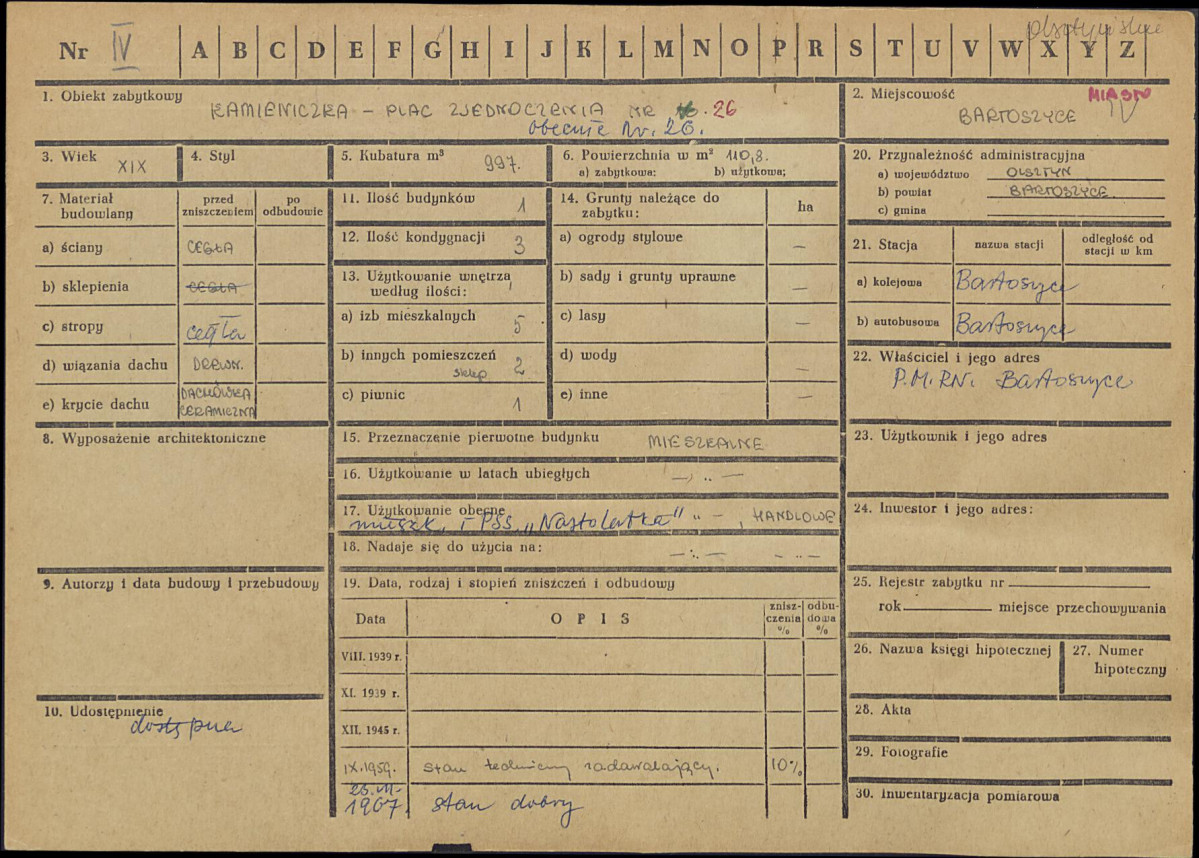 Nr IV A B C D E F G H I J K L M N O P R S T U V W X Y Z
olsztyńskie
1. Obiekt zabytkowy
KAMIENICZKA – PLAC ZJEDNOCZENIA NR 26
obecnie Nr. 26.
2. Miejscowość
MIASTO
BARTOSZYCE IV
3. Wiek
XIX
4. Styl
5. Kubatura m³
997.
6. Powierzchnia w m² 110,8.
a) zabytkowa: b) użytkowa;
20. Przynależność administracyjna
a) województwo OLSZTYN
b) powiat BARTOSZYCE
c) gmina
7. Materiał budowlany
przed zniszczeniem
po odbudowie
a) ściany CEGŁA
b) sklepienia CEGŁA
c) stropy cegła
d) wiązania dachu DREWN.
e) krycie dachu DACHÓWKA CERAMICZNA
11. Ilość budynków 1
12. Ilość kondygnacji 3
13. Użytkowanie wnętrza według ilości:
a) izb mieszkalnych 5
b) innych pomieszczeń 2
sklep
c) piwnic 1
14. Grunty należące do zabytku:
ha
a) ogrody stylowe –
b) sady i grunty uprawne –
c) lasy –
d) wody –
e) inne –
21. Stacja
nazwa stacji
odległość od stacji w km
a) kolejowa Bartoszyce
b) autobusowa Bartoszyce
22. Właściciel i jego adres
P.M.RN. Bartoszyce
8. Wyposażenie architektoniczne
15. Przeznaczenie pierwotne budynku MIESZKALNE
16. Użytkowanie w latach ubiegłych –,,–
17. Użytkowanie obecne
mieszk. i PSS „Nastolatka” „ – , HANDLOWE
18. Nadaje się do użycia na: –:– – .. –
23. Użytkownik i jego adres
24. Inwestor i jego adres:
9. Autorzy i data budowy i przebudowy
19. Data, rodzaj i stopień zniszczeń i odbudowy
Data
OPIS
znisz-
czenia
%
odbu-
dowa
%
VIII. 1939 r.
XI. 1939 r.
XII. 1945 r.
IX.1959. stan techniczny zadawalający. 10%
1967. stan dobry
10. Udostępnienie
dostępna
25. Rejestr zabytku nr
rok miejsce przechowywania
26. Nazwa księgi hipotecznej
27. Numer hipoteczny
28. Akta
29. Fotografie
30. Inwentaryzacja pomiarowa